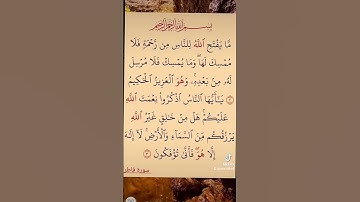 بسم الله الرحمن الرحيم
مَّا يَفْتَحِ ٱللَّهُ لِلنَّاسِ مِن رَّحْمَةٍ فَلَا
مُمْسِكَ لَهَا ۖ وَمَا يُمْسِكْ فَلَا مُرْسِلَ
لَهُۥ مِنۢ بَعْدِهِۦ ۚ وَهُوَ ٱلْعَزِيزُ ٱلْحَكِيمُ
٢ يَـٰٓأَيُّهَا ٱلنَّاسُ ٱذْكُرُوا۟ نِعْمَتَ ٱللَّهِ
عَلَيْكُمْ ۚ هَلْ مِنْ خَـٰلِقٍ غَيْرُ ٱللَّهِ
يَرْزُقُكُم مِّنَ ٱلسَّمَآءِ وَٱلْأَرْضِ ۚ لَآ إِلَـٰهَ
إِلَّا هُوَ ۖ فَأَنَّىٰ تُؤْفَكُونَ ٣
سورة فاطر